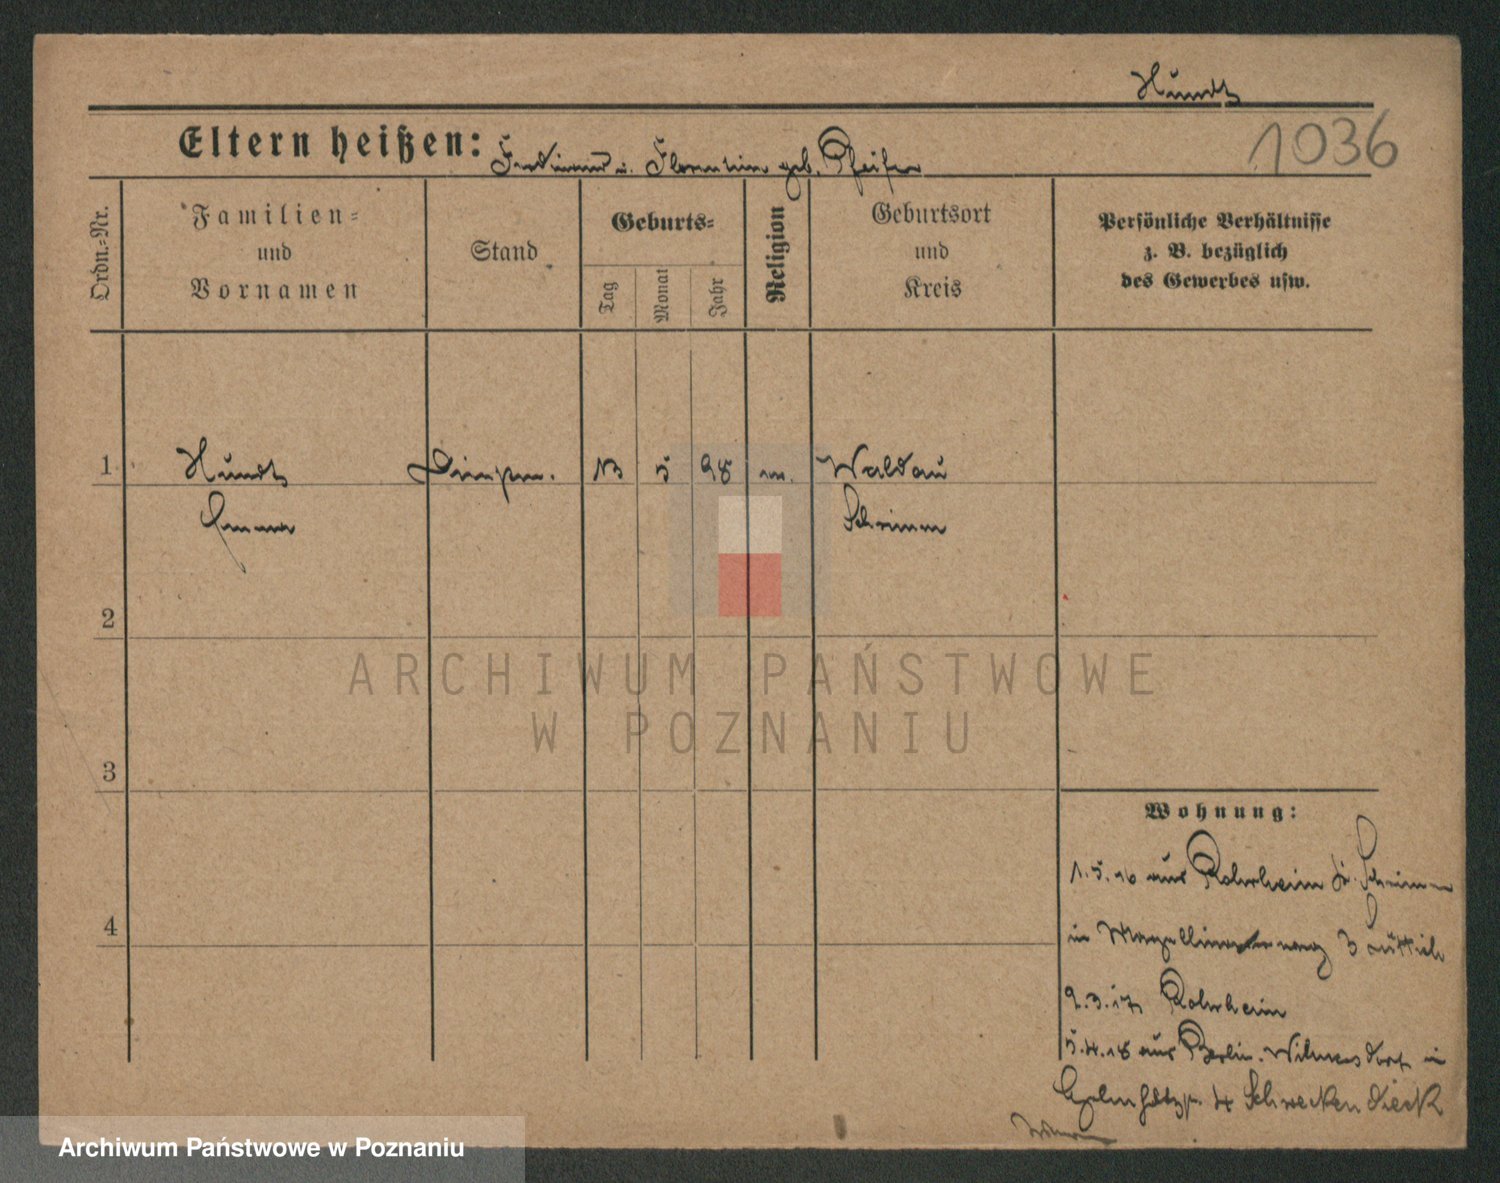 Hundt
1036
Eltern heißen: Ferdinand u. Florentine geb. Pfeifer
Ordn.=Nr.
Familien=
und
Vornamen
Stand
Geburts=
Tag
Monat
Jahr
Religion
Geburtsort
und
Kreis
Persönliche Verhältnisse
z. B. bezüglich
des Gewerbes usw.
1 Hundt 13 5 98 Waldau
Emma Schrimm
2
3
4
ARCHIWUM PAŃSTWOWE
W POZNANIU
Wohnung:
1.5.16 aus Rohrheim Kr. Schrimm
in 3
9.3.17 Rohrheim
5.4.18 aus Berlin-Wilmersdorf in
4 Schweckendieck
Archiwum Państwowe w Poznaniu